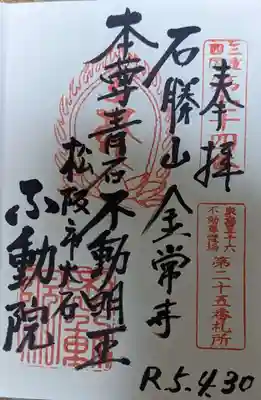 奉拝
石勝山 金常寺
本尊青石不動明王
松阪市大石
不動院
東海三十六
不動尊霊場
第二十五番札所
R.5.4.30